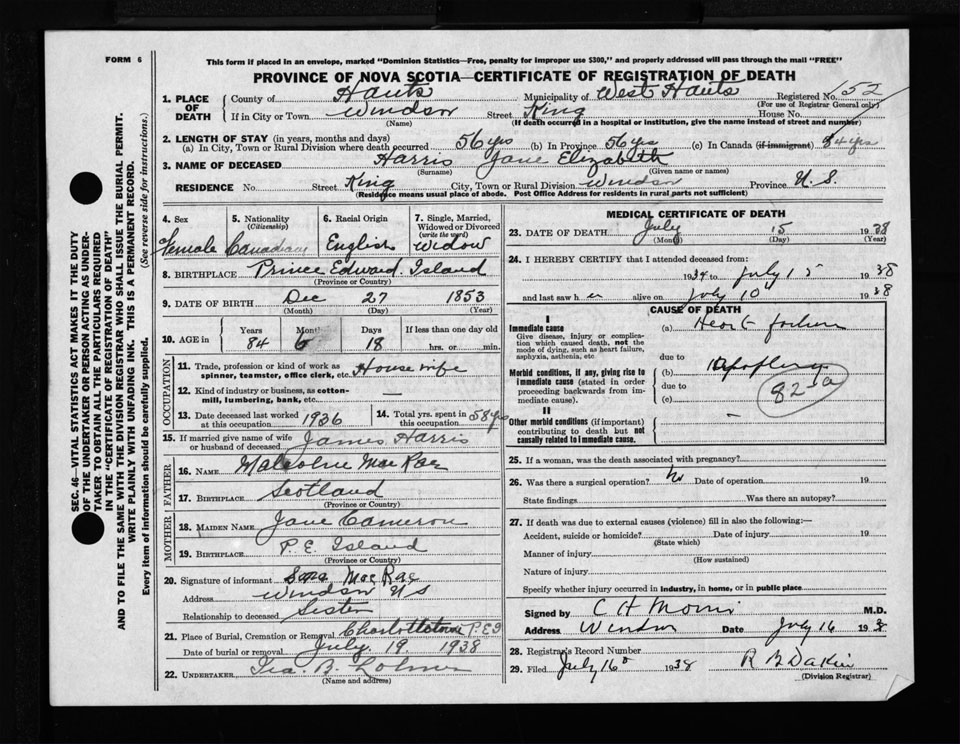 FORM 6
This form if placed in an envelope, marked "Dominion Statistics—Free, penalty for improper use $300," and properly addressed will pass through the mail "FREE"
PROVINCE OF NOVA SCOTIA—CERTIFICATE OF REGISTRATION OF DEATH
1. PLACE OF DEATH County of Hants Municipality of West Hants Registered No. 52
(For use of Registrar General only)
If in City or Town Windsor Street King House No.
(Name) (If death occurred in a hospital or institution, give the name instead of street and number)
2. LENGTH OF STAY (in years, months and days)
(a) In City, Town or Rural Division where death occurred 56 yrs (b) In Province 56 yrs (c) In Canada (if immigrant) 84 yrs
3. NAME OF DECEASED Harris Jane Elizabeth
(Surname) (Given name or names)
RESIDENCE No. Street King City, Town or Rural Division Windsor Province N.S.
(Residence means usual place of abode. Post Office Address for residents in rural parts not sufficient)
4. Sex Female
5. Nationality (Citizenship) Canadian
6. Racial Origin English
7. Single, Married, Widowed or Divorced (write the word) Widow
8. BIRTHPLACE Prince Edward Island
(Province or Country)
9. DATE OF BIRTH Dec 27 1853
(Month) (Day) (Year)
10. AGE in Years 84 Months 6 Days 18 If less than one day old hrs. or min.
OCCUPATION
11. Trade, profession or kind of work as spinner, teamster, office clerk, etc. House wife
12. Kind of industry or business, as cotton-mill, lumbering, bank, etc. —
13. Date deceased last worked at this occupation 1936
14. Total yrs. spent in this occupation 58 yrs
15. If married give name of wife or husband of deceased James Harris
FATHER
16. NAME Malcolm MacRae
17. BIRTHPLACE Scotland
(Province or Country)
MOTHER
18. MAIDEN NAME Jane Cameron
19. BIRTHPLACE P. E. Island
(Province or Country)
20. Signature of informant MacRae
Address Windsor NS
Relationship to deceased Sister
21. Place of Burial, Cremation or Removal Charlottetown P.E.I
Date of burial or removal July 19 1938
22. UNDERTAKER Ira. B. Lohnes
(Name and address)
MEDICAL CERTIFICATE OF DEATH
23. DATE OF DEATH July 15 1938
(Month) (Day) (Year)
24. I HEREBY CERTIFY that I attended deceased from:
1934 to July 15 1938
and last saw her alive on July 10 1938
CAUSE OF DEATH
I
Immediate cause
Give disease, injury or complication which caused death, not the mode of dying, such as heart failure, asphyxia, asthenia, etc.
(a) Heart failure
due to
Morbid conditions, if any, giving rise to immediate cause (stated in order proceeding backwards from immediate cause).
(b) Apoplexy
due to
(c)
82-a
II
Other morbid conditions (if important) contributing to death but not causally related to immediate cause. —
25. If a woman, was the death associated with pregnancy?
26. Was there a surgical operation? No Date of operation 19
State findings Was there an autopsy?
27. If death was due to external causes (violence) fill in also the following:—
Accident, suicide or homicide? Date of injury 19
(State which)
Manner of injury
(How sustained)
Nature of injury
Specify whether injury occurred in industry, in home, or in public place
Signed by C H Morris M.D.
Address Windsor Date July 16 1938
28. Registrar's Record Number
29. Filed July 16 1938 R B Dakin
(Division Registrar)
SEC. 46—VITAL STATISTICS ACT MAKES IT THE DUTY
OF THE UNDERTAKER OR PERSON ACTING AS UNDER-
TAKER TO OBTAIN ALL THE PARTICULARS REQUIRED
IN THE "CERTIFICATE OF REGISTRATION OF DEATH"
AND TO FILE THE SAME WITH THE DIVISION REGISTRAR WHO SHALL ISSUE THE BURIAL PERMIT.
WRITE PLAINLY WITH UNFADING INK. THIS IS A PERMANENT RECORD.
Every item of information should be carefully supplied. (See reverse side for instructions.)